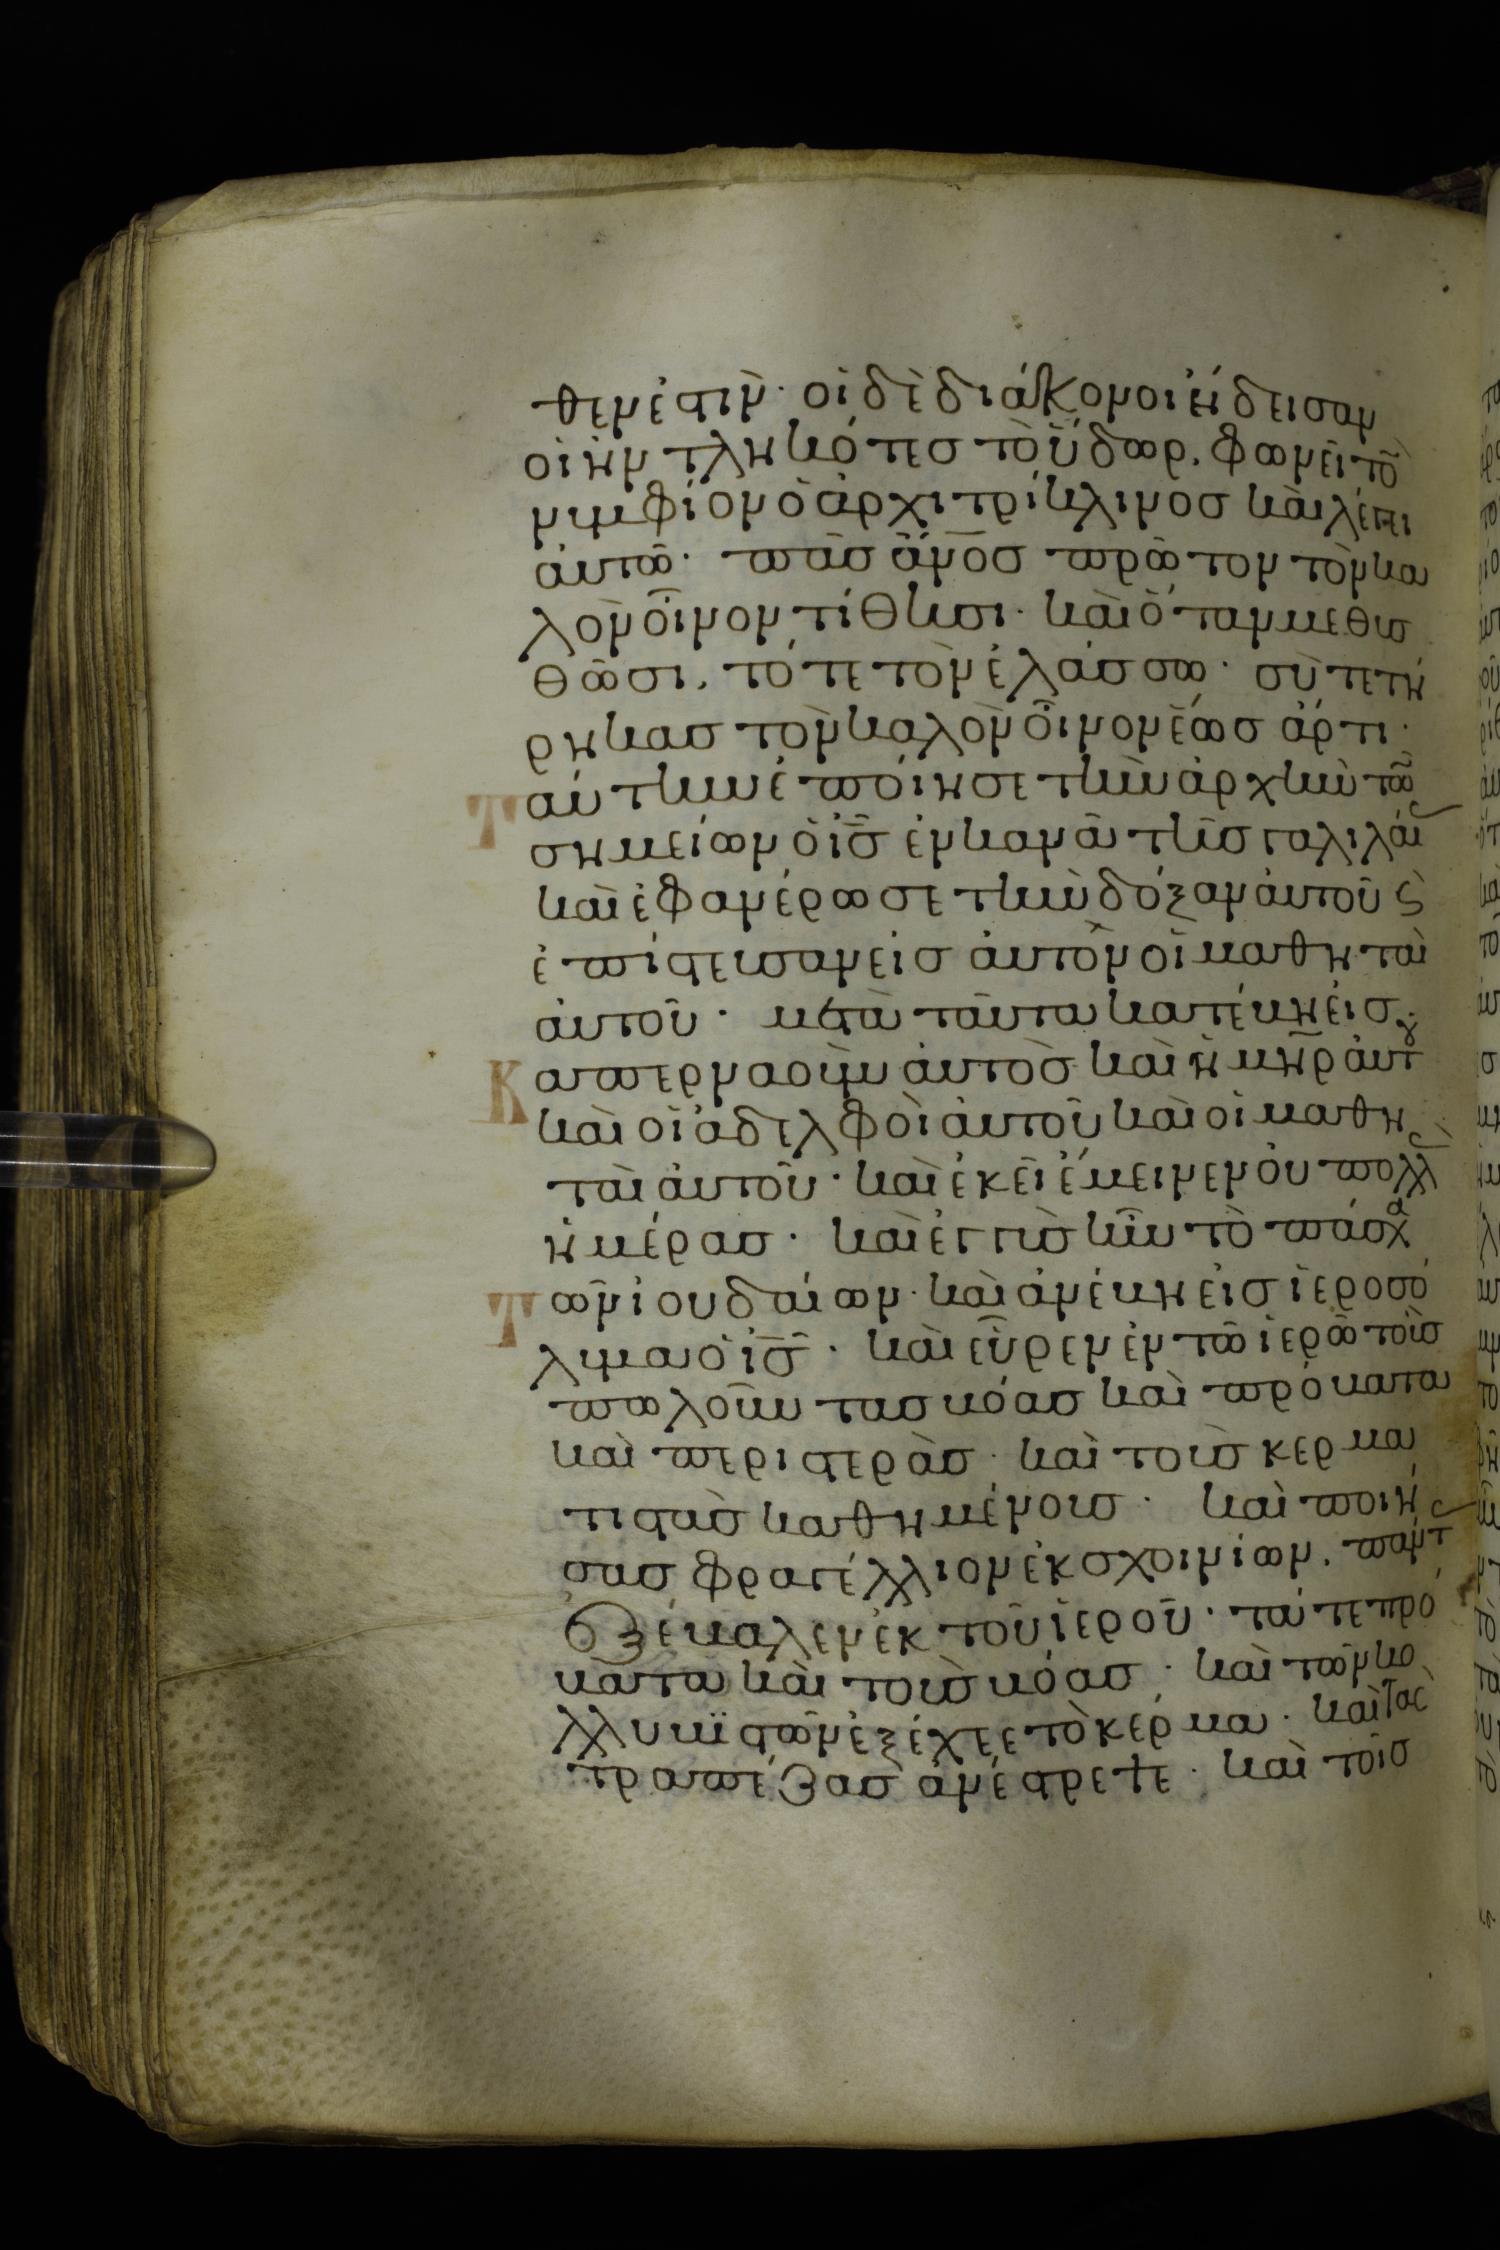 θεν ἐστιν· οἱ δὲ διάκονοι ἤδεισαν
οἱ ἠντληκότες τὸ ὕδωρ. φωνεῖ τὸ
νυμφίον ὁ ἀρχιτρίκλινος καὶ λέγει
αὐτῶ· πᾶς ἄνος πρῶτον τὸν κα
λὸν οἶνον τίθησι· καὶ ὅταν μεθυσ
θῶσι, τότε τὸν ἐλάσσω· σὺ τετή
ρηκας τὸν καλὸν οἶνον ἕως ἄρτι·
Ταύτην ἐποίησε τὴν ἀρχὴν τῶ
σημείων ὁ ις ἐν κανᾶ τῆς γαλιλαί
καὶ ἐφανέρωσε τὴν δόξαν αὐτοῦ ϛ
ἐπίστευσαν εἰς αὐτὸν οἱ μαθηταὶ
αὐτοῦ· μετὰ ταῦτα κατέβη εἰς
Καπερναοὺμ αὐτὸς καὶ ἡ μηρ αὐτου
καὶ οἱ ἀδελφοὶ αὐτοῦ καὶ οἱ μαθη
ταὶ αὐτοῦ· καὶ ἐκεῖ ἔμεινεν οὐ πολλ
ἡμέρας· καὶ ἐγγὺς ἦν τὸ πάσχα
Τῶν ἰουδαίων· καὶ ἀνέβη εἰς ἱεροσό
λυμα ὁ ις· καὶ εὗρεν ἐν τῶ ἱερῶ τοὺς
πωλοῦντας βόας καὶ πρόβατα
καὶ περιστερὰς· καὶ τοὺς κερμα
τιστὰς καθημένους· καὶ ποιή
σας φραγέλλιον ἐκ σχοινίων. πάντ
ἐξέβαλεν ἐκ τοῦ ἱεροῦ· τά τε πρό
βατα καὶ τοὺς βόας· καὶ τῶν κο
λλυβιστῶν ἐξέχεε τὸ κέρμα· καὶ τὰς
τραπέζας ἀνέστρεψε· καὶ τοῖς